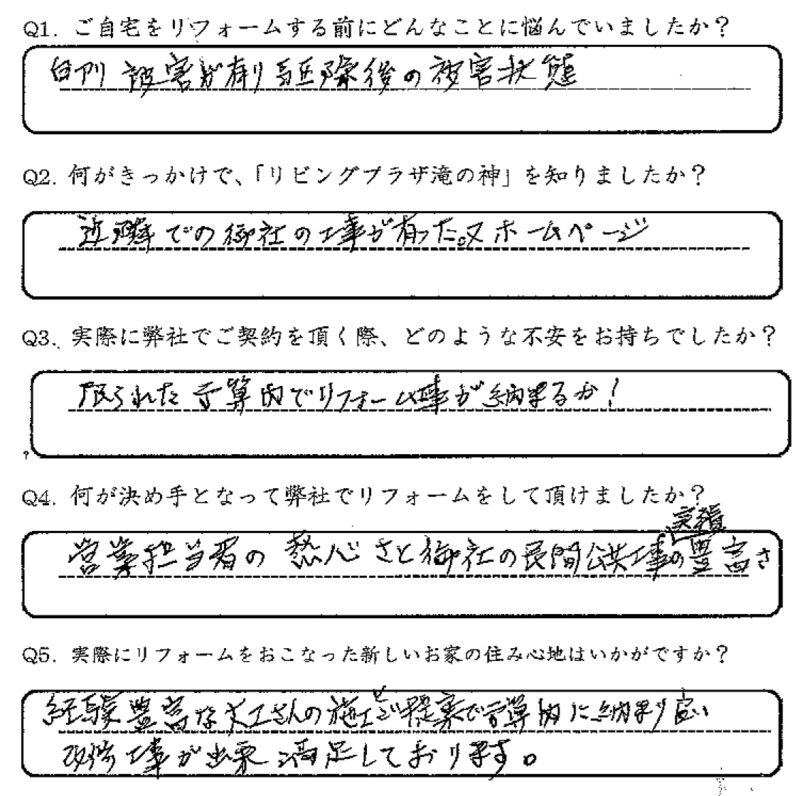 Q1. ご自宅をリフォームする前にどんなことに悩んでいましたか?
白アリ被害が有り駆除後の被害状態
Q2. 何がきっかけで、「リビングプラザ滝の神」を知りましたか?
近隣での御社の工事が有った。又ホームページ
Q3. 実際に弊社でご契約を頂く際、どのような不安をお持ちでしたか?
限られた予算内でリフォーム工事が納まるか!
Q4. 何が決め手となって弊社でリフォームをして頂けましたか?
実績
営業担当者の熱心さと御社の民間公共工事の豊富さ
Q5. 実際にリフォームをおこなった新しいお家の住み心地はいかがですか?
経験豊富な大工さんの施工ご提案で予算内に納まり良い
改修工事が出来満足しております。